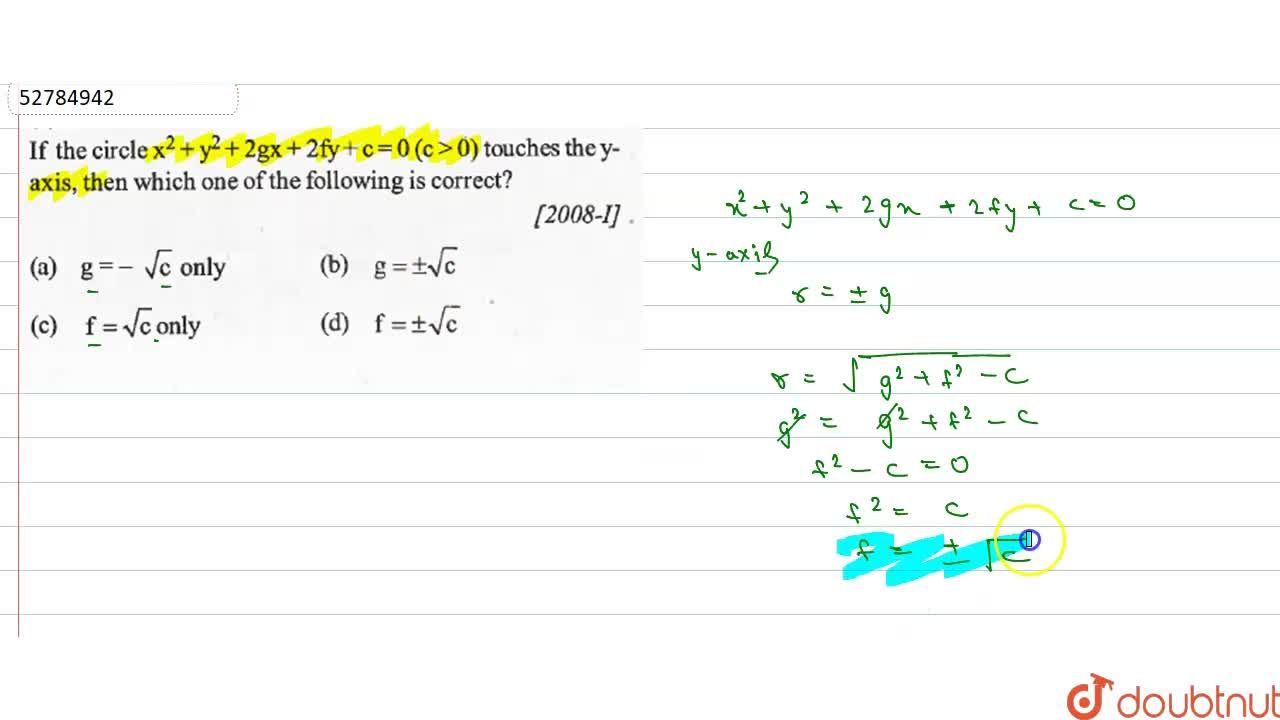 52784942
If the circle x² + y² + 2gx + 2fy + c = 0 (c > 0) touches the y-
axis, then which one of the following is correct?
[2008-I] .
(a) g = – √c only (b) g = ±√c
(c) f = √c only (d) f = ±√c
x² + y² + 2gx + 2fy + c = 0
y-axis
r = ± g
r = √(g² + f² – c)
g² = g² + f² – c
f² – c = 0
f² = c
f = ± √c
doubtnut